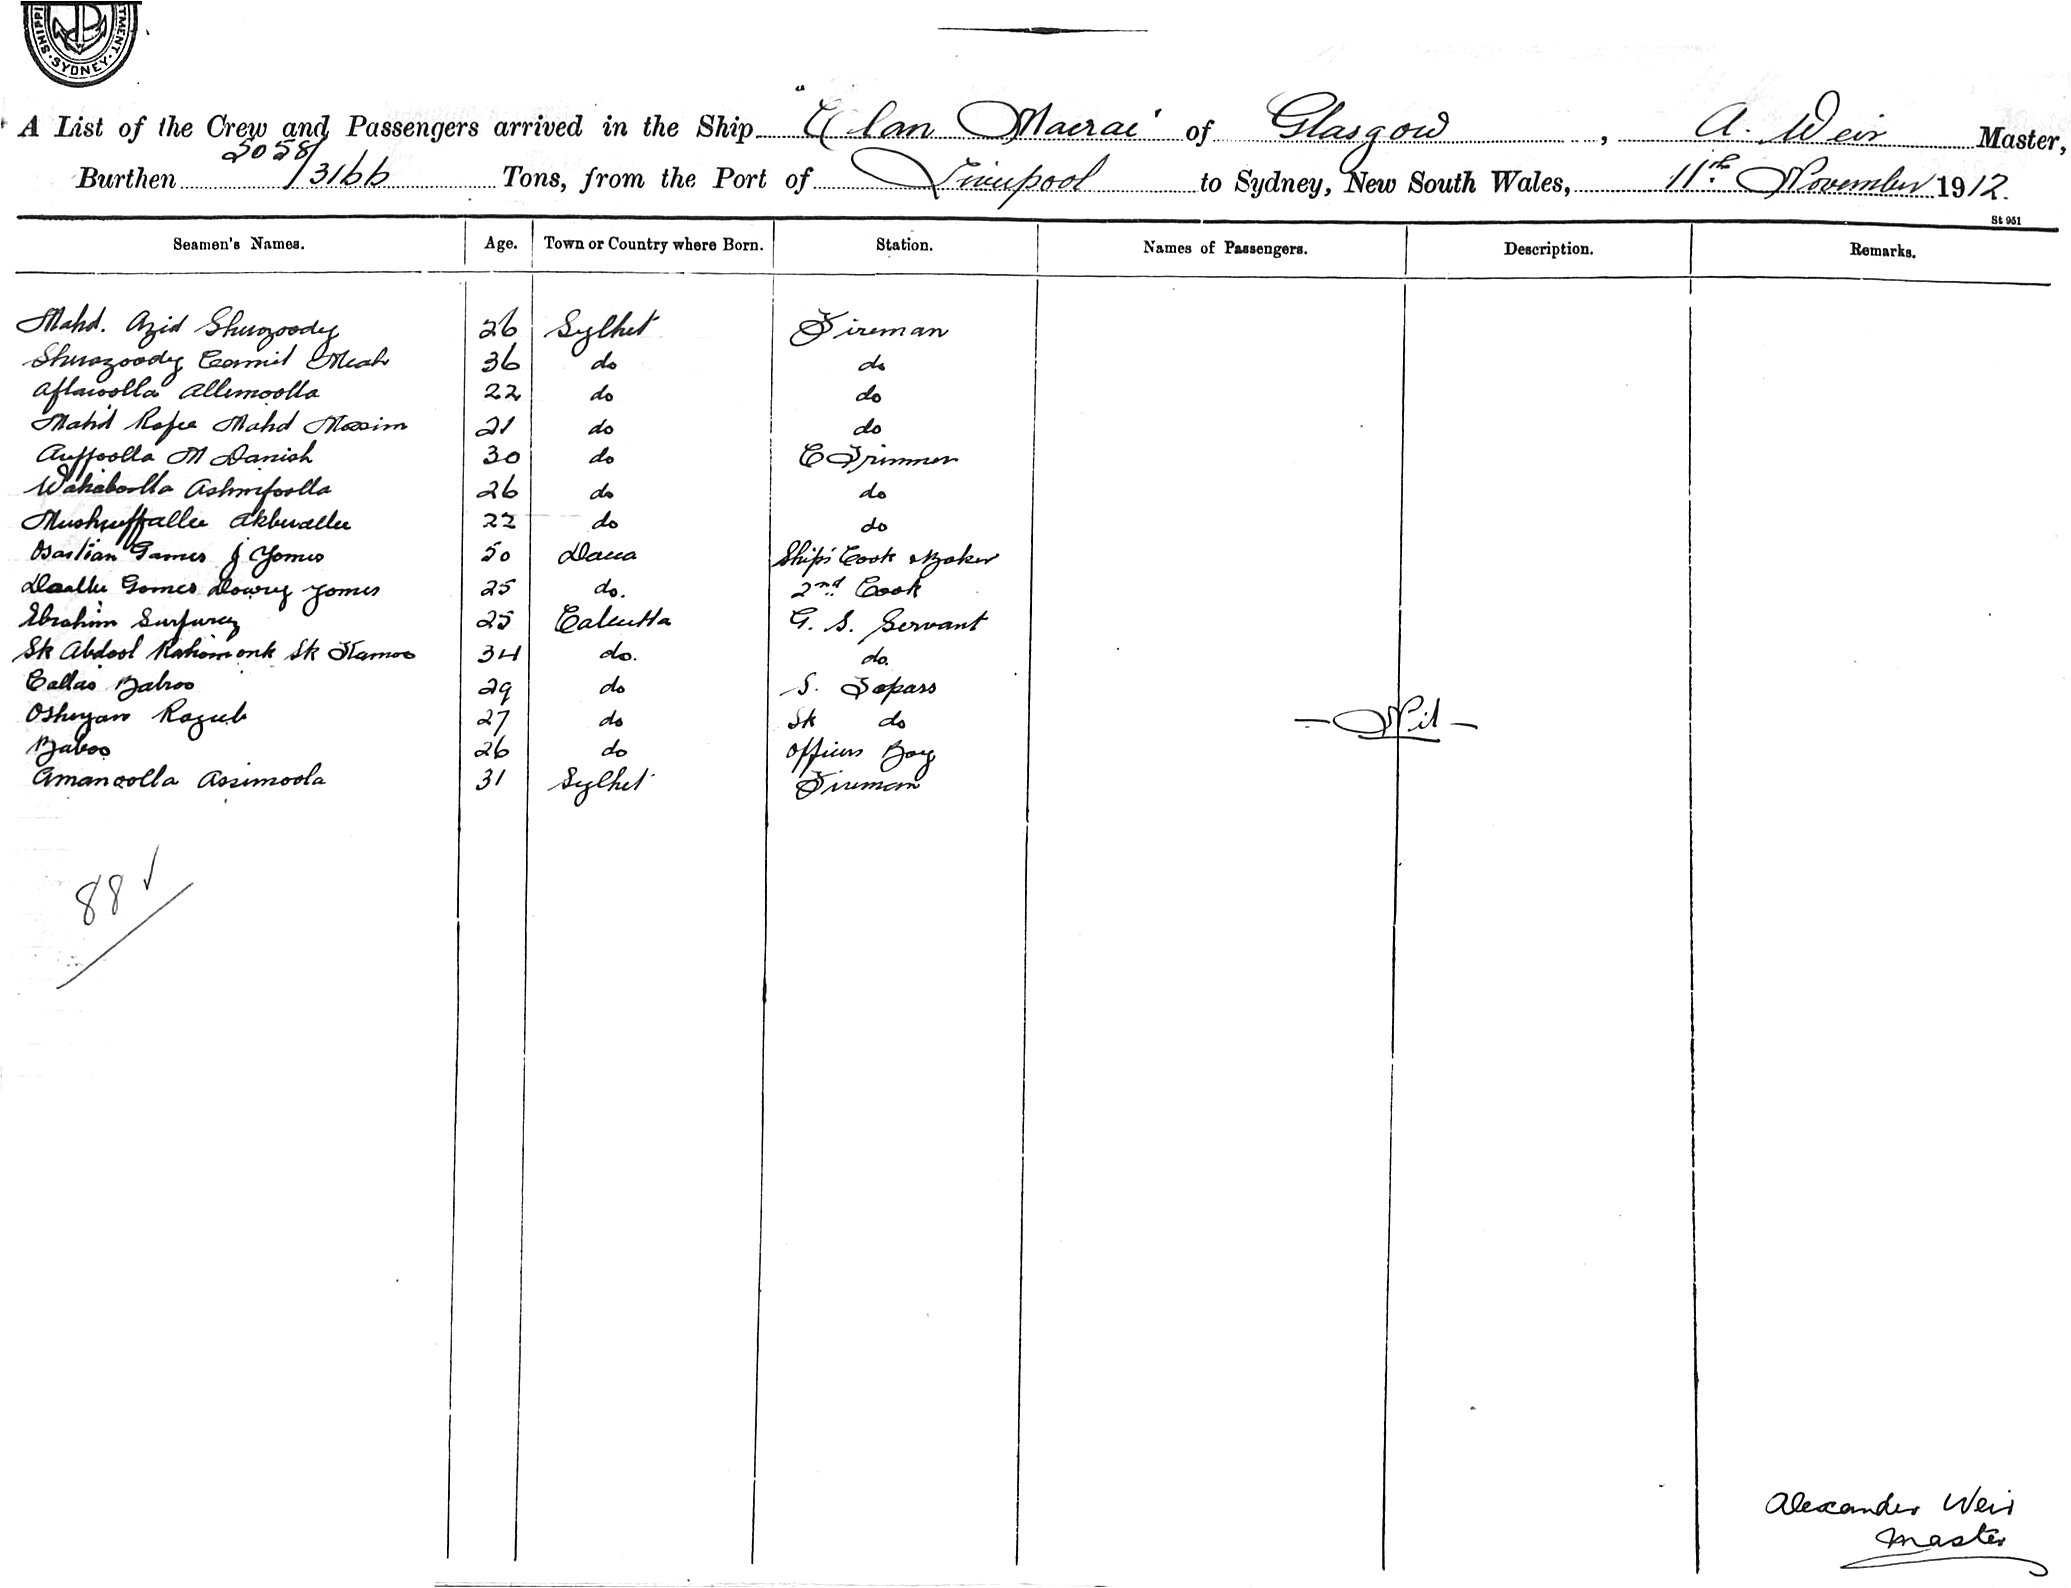 SHIPPI TMENT · SYDNEY ·
A List of the Crew and Passengers arrived in the Ship "Clan Macrae" of Glasgow, A. Weir Master,
Burthen 5058/3166 Tons, from the Port of Liverpool to Sydney, New South Wales, 11th November 1912.
St 951
Seamen's Names. Age. Town or Country where Born. Station. Names of Passengers. Description. Remarks.
Mahd. Azid Shurozoody 26 Sylhet Fireman
Shurozoody Meah 36 do do
Allimoolla 22 do do
Mahd Rofee Mahd Mossim 21 do do
M Danish 30 do C Trimmer
Wahaboolla 26 do do
22 do do
Gomes J Gomes 50 Dacca Ships Cook & Baker
Gomes Gomes 25 do. 2nd Cook
Ebrahim 25 Calcutta G. S. Servant
Sk Abdool Sk 34 do. do.
Baboo 29 do S. Topass
27 do Sk do
— Nil —
Baboo 26 do Officers Boy
Amanoolla Assimoola 31 Sylhet Fireman
88 ✓
Alexander Weir
Master